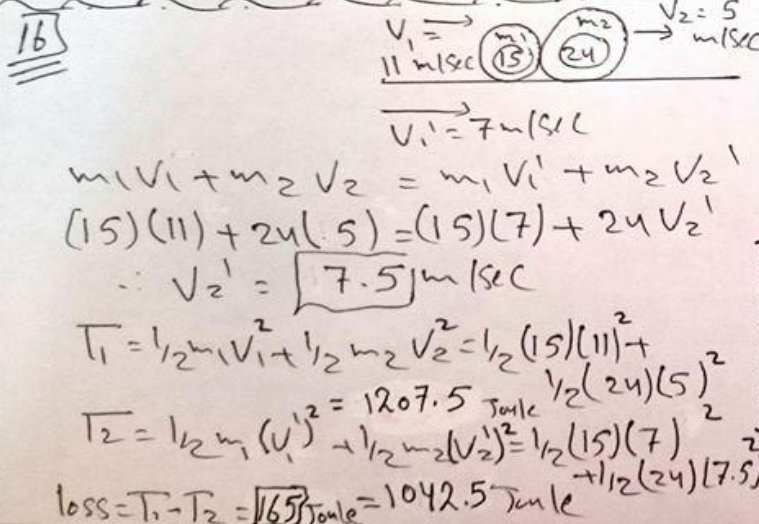 16
V₁ = 11 m/sec m₁ 15 m₂ 24 V₂ = 5 m/sec
V₁' = 7 m/sec
m₁V₁ + m₂V₂ = m₁V₁' + m₂V₂'
(15)(11) + 24(5) = (15)(7) + 24V₂'
∴ V₂' = 7.5 m/sec
T₁ = 1/2 m₁V₁² + 1/2 m₂V₂² = 1/2(15)(11)² +
1/2(24)(5)²
= 1207.5 Joule
T₂ = 1/2 m₁(V₁')² + 1/2 m₂(V₂')² = 1/2(15)(7)²
+ 1/2(24)(7.5)²
loss = T₁ - T₂ = 165 Joule = 1042.5 Joule